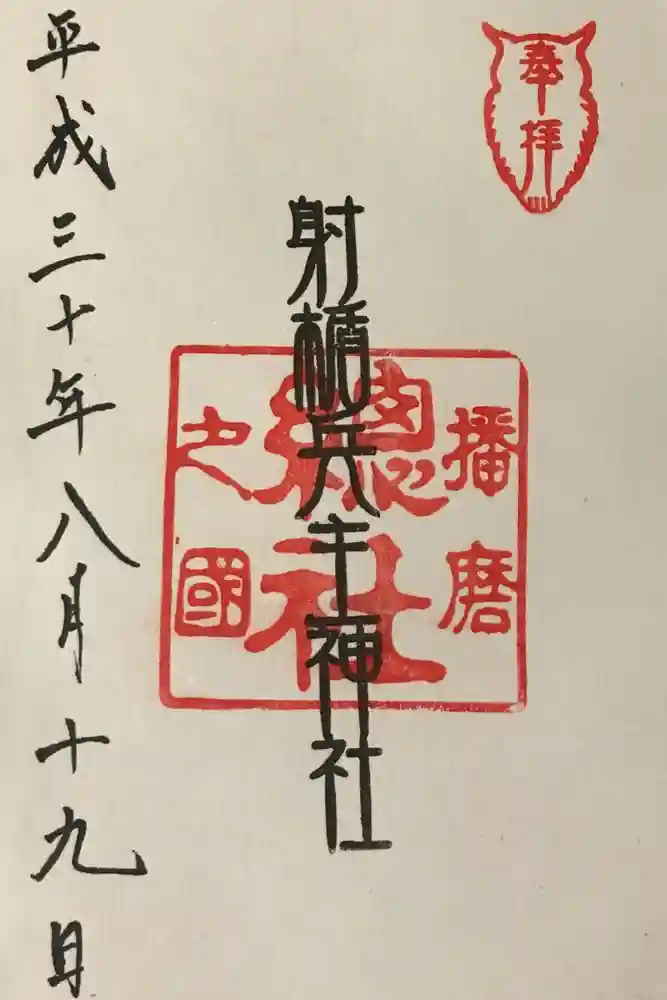 奉拝
播磨
總社
之國
射楯兵主神社
平成三十年八月十九日